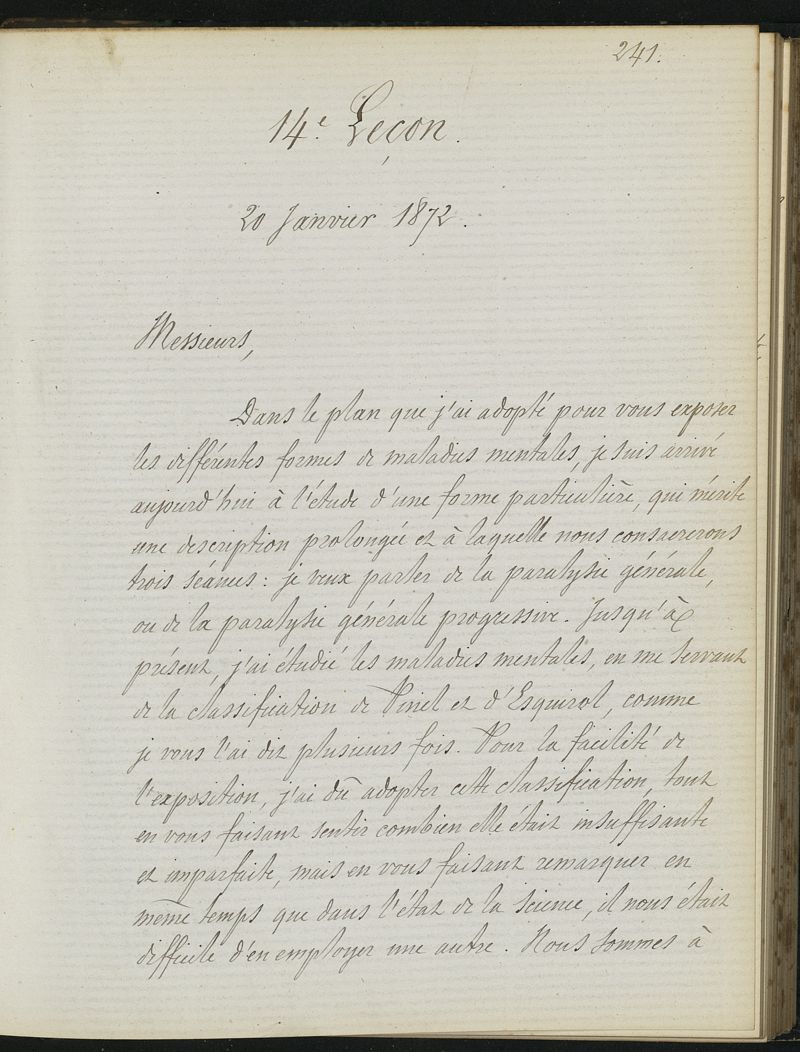 241.
14.e Leçon.
20 Janvier 1872.
Messieurs,
Dans le plan que j'ai adopté pour vous exposer
les différentes formes de maladies mentales, je suis arrivé
aujourd'hui à l'étude d'une forme particulière, qui mérite
une description prolongée et à laquelle nous consacrerons
trois séances : je veux parler de la paralysie générale,
ou de la paralysie générale progressive. Jusqu'à
présent, j'ai étudié les maladies mentales, en me servant
de la classification de Pinel et d'Esquirol, comme
je vous l'ai dit plusieurs fois. Pour la facilité de
l'exposition, j'ai dû adopter cette classification, tout
en vous faisant sentir combien elle était insuffisante
et imparfaite, mais en vous faisant remarquer en
même temps que dans l'état de la science, il nous était
difficile d'en employer une autre. Nous sommes à